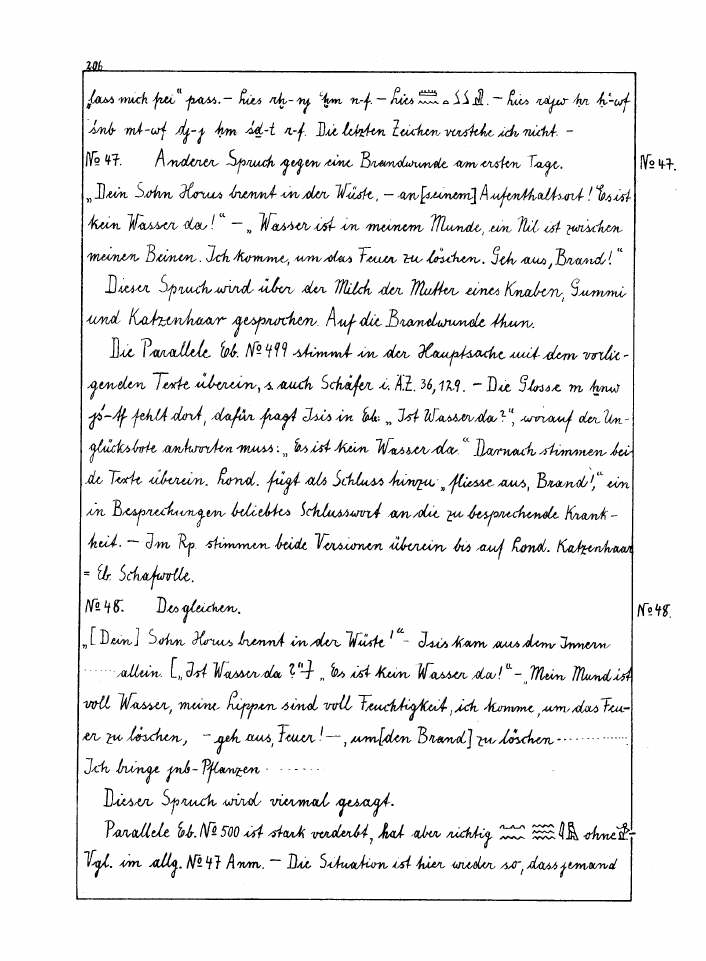 206
„lass mich frei“ pass. – Lies rḫ-nj ḥm n-f. – Lies – Lies rdjw ḥr ḥʿ-wf
śnb mt-wf dj-j ḥm śd-t r-f. Die letzten Zeichen verstehe ich nicht. –
No 47. Anderer Spruch gegen eine Brandwunde am ersten Tage. No 47.
„Dein Sohn Horus brennt in der Wüste, – an [seinem] Aufenthaltsort! “Es ist
kein Wasser da!“ – „Wasser ist in meinem Munde, ein Nil ist zwischen
meinen Beinen. Ich komme, um das Feuer zu löschen. Geh aus, Brand!“
Dieser Spruch wird über der Milch der Mutter eines Knaben, Gummi
und Katzenhaar gesprochen. Auf die Brandwunde thun.
Die Parallele Eb. No 499 stimmt in der Hauptsache mit dem vorlie-
genden Texte überein, s. auch Schäfer i. ÄZ. 36, 129. – Die Glosse m ḫnw
jś-tf fehlt dort, dafür fragt Isis in Eb. „Ist Wasser da?“, worauf der Un-
glücksbote antworten muss: „Es ist kein Wasser da.“ Darnach stimmen bei-
de Texte überein. Lond. fügt als Schluss hinzu „fliesse aus, Brand!,“ ein
in Besprechungen beliebtes Schlusswort an die zu besprechende Krank-
heit. – Im Rp. stimmen beide Versionen überein bis auf Lond. Katzenhaar
= Eb. Schafwolle.
No 48. Desgleichen. No 48.
„[Dein] Sohn Horus brennt in der Wüste!“ – Isis kam aus dem Innern
...... allein. [„Ist Wasser da?“] „Es ist kein Wasser da!“ – „Mein Mund ist
voll Wasser, meine Lippen sind voll Feuchtigkeit, ich komme, um das Feu-
er zu löschen, – geh aus, Feuer! –, um [den Brand] zu löschen ............
Ich bringe jnb-Pflanzen ......
Dieser Spruch wird viermal gesagt.
Parallele Eb. No 500 ist stark verderbt, hat aber richtig ohne
Vgl. im allg. No 47 Anm. – Die Situation ist hier wieder so, dass jemand